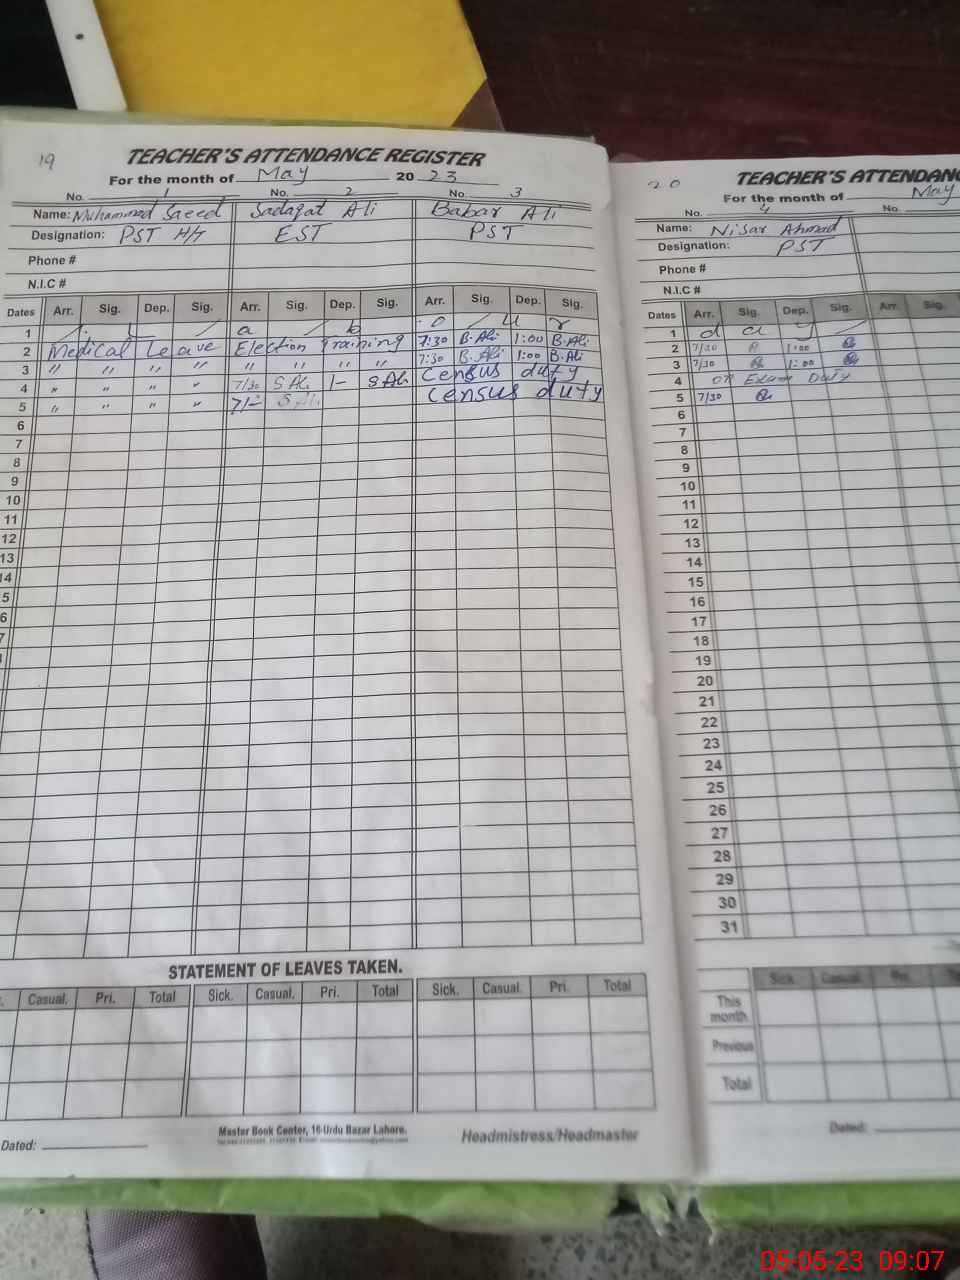 19
TEACHER'S ATTENDANCE REGISTER
For the month of May 2023
No. 1 No. 2 No. 3
Name: Muhammad Saeed Sadaqat Ali Babar Ali
Designation: PST H/T EST PST
Phone #
N.I.C #
Dates Arr. Sig. Dep. Sig. Arr. Sig. Dep. Sig. Arr. Sig. Dep. Sig.
1 L a b o u r
2 Medical Leave Election Training 7:30 B.Ali 1:00 B.Ali
3 〃 〃 〃 〃 〃 〃 〃 〃 7:30 B.Ali 1:00 B.Ali
4 〃 〃 〃 〃 7/30 S Ali 1- S Ali Census duty
5 〃 〃 〃 〃 7/- S Ali Census duty
6
7
8
9
10
11
12
13
14
5
6
7
STATEMENT OF LEAVES TAKEN.
Casual. Pri. Total Sick. Casual. Pri. Total Sick. Casual. Pri. Total
Master Book Center, 16-Urdu Bazar Lahore.
Dated: Headmistress/Headmaster
20
TEACHER'S ATTENDANC
For the month of May
No. 4 No.
Name: Nisar Ahmad
Designation: PST
Phone #
N.I.C #
Dates Arr. Sig. Dep. Sig. Arr. Sig.
1 d a y
2 7/30 1:00
3 7/30 1:00
4 on Exam Duty
5 7/30
6
7
8
9
10
11
12
13
14
15
16
17
18
19
20
21
22
23
24
25
26
27
28
29
30
31
Sick Casual. Pri.
This month
Previous
Total
Dated:
05-05-23 09:07